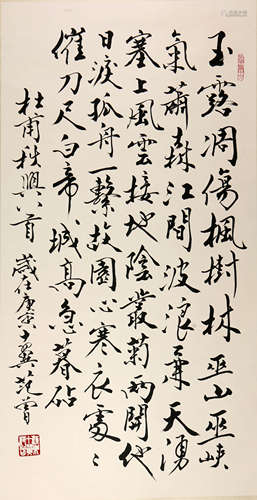 玉露凋傷楓樹林巫山巫峽
氣蕭森江間波浪兼天湧
塞上風雲接地陰叢菊兩開他
日淚孤舟一繫故園心寒衣處々
催刀尺白帝城高急暮砧
杜甫秋興八首 歲在庚寅十翼范曾